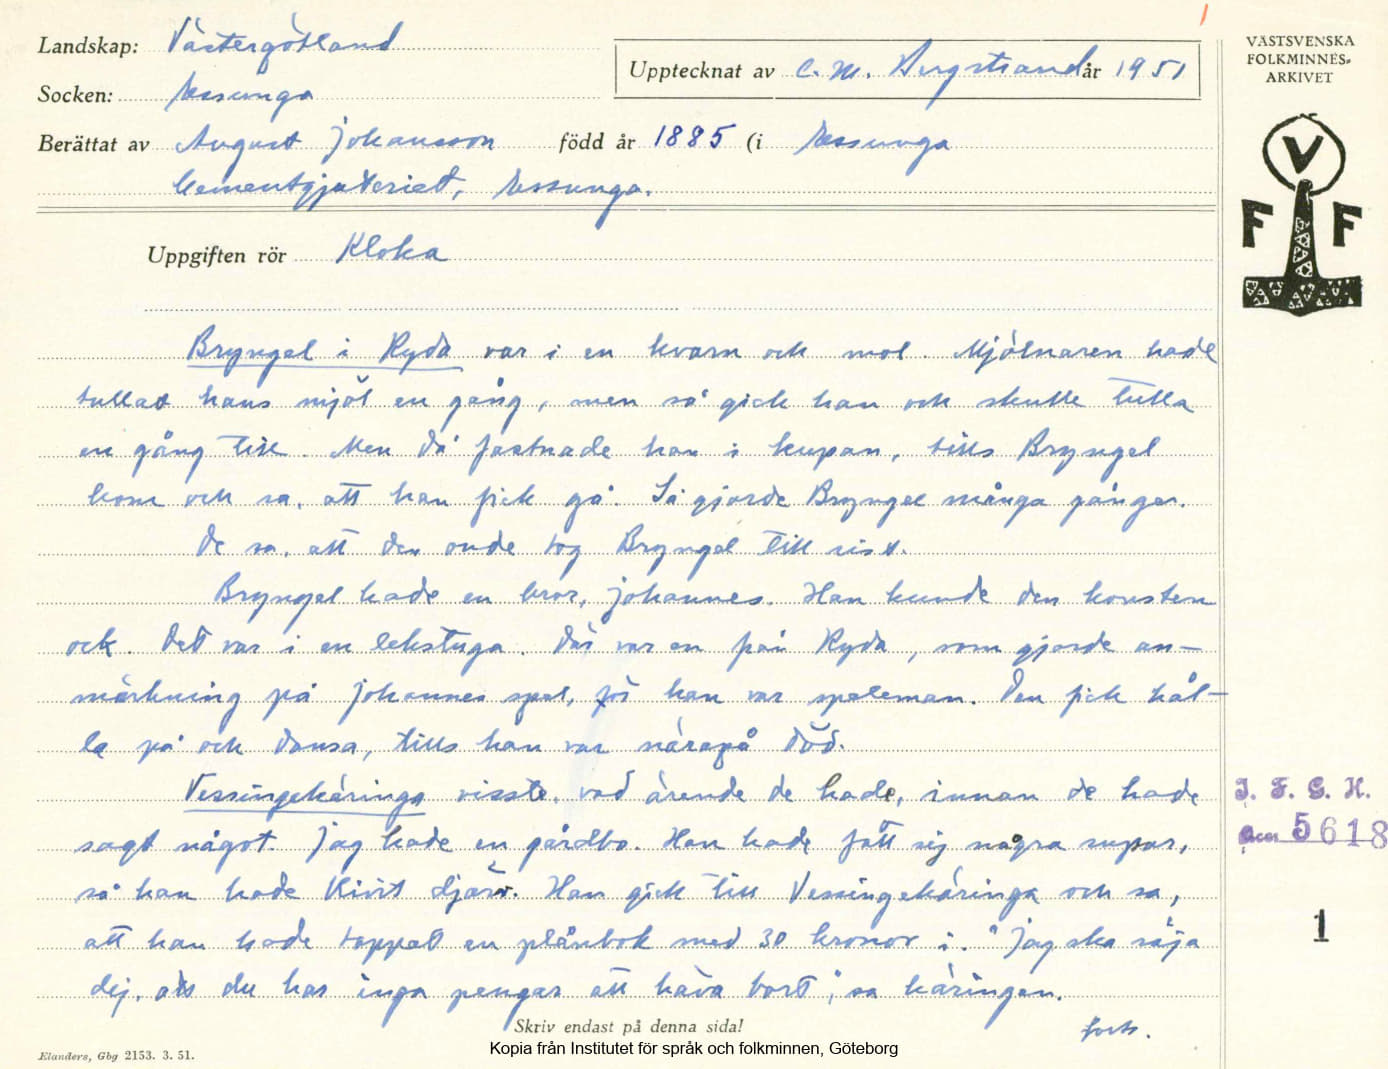 Landskap: Västergötland
Socken: Essunga
Upptecknat av C. M. Bergstrand år 1951
Berättat av August Johansson född år 1885 (i Essunga
Cementgjuteriet, Essunga.
Uppgiften rör Kloka
VÄSTSVENSKA
FOLKMINNES-
ARKIVET
V
F F
Bryngel i Ryda var i en kvarn och mol. Mjölnaren hade
tullat hans mjöl en gång, men så gick han och skulle tulla
en gång till. Men då fastnade han i kupan, tills Bryngel
kom och sa, att han fick gå. Så gjorde Bryngel många gånger.
De sa, att den onde tog Bryngel till sist.
Bryngel hade en bror, Johannes. Han kunde den konsten
ock. Det var i en lekstuga. Där var en från Ryda, som gjorde an-
märkning på Johannes spel, för han var speleman. Den fick hål-
la på och dansa, tills han var närapå död.
Vessingekäringa visste, vad ärende de hade, innan de hade
sagt något. Jag hade en gårdbo. Han hade fått sig några supar,
så han hade blivit djärv. Han gick till Vessingekäringa och sa,
att han hade tappat en plånbok med 30 kronor i. "Jag ska säja
dej, att du har inga pengar att häva bort", sa käringen.
forts.
I. F. G. H.
5618
1
Skriv endast på denna sida!
Elanders, Gbg 2153. 3. 51.
Kopia från Institutet för språk och folkminnen, Göteborg